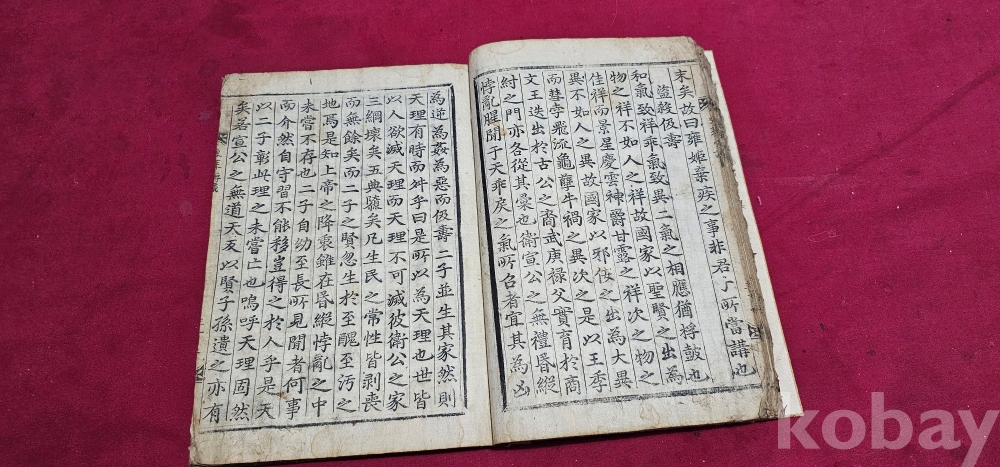 末矣故曰雍姬棄疾之事非君子所當講也
盜殺伋壽
和氣致祥乖氣致異二氣之相應猶桴鼓也
物之祥不如人之祥故國家以聖賢之出為
佳祥而景星慶雲神爵甘露之祥次之物之
異不如人之異故國家以邪佞之出為大異
而彗孛飛流龜孽牛禍之異次之是以王季
文王迭出於古公之裔武庚禄父實育於商
紂之門亦各從其彙也衛宣公之無禮昏縱
悖亂腥聞于天乖戾之氣所召者宜其為凶
為逆為姦為惡而伋壽二子並生其家然則
天理有時而舛乎曰是所以為天理也世皆
以人欲滅天理而天理不可滅彼衛公之家
三綱壞矣五典隳矣凡生民之常性皆剥喪
而無餘矣而二子之賢忽生於至醜至汚之
地焉是知上帝之降衷雖在昏縱悖亂之中
未嘗不存也二子自幼至長所見聞者何事
而介然自守習不能移豈得之於人乎是天
以二子彰此理之未嘗亡也嗚呼天理固然
矣若宣公之無道天反以賢子孫遺之亦有
kobay